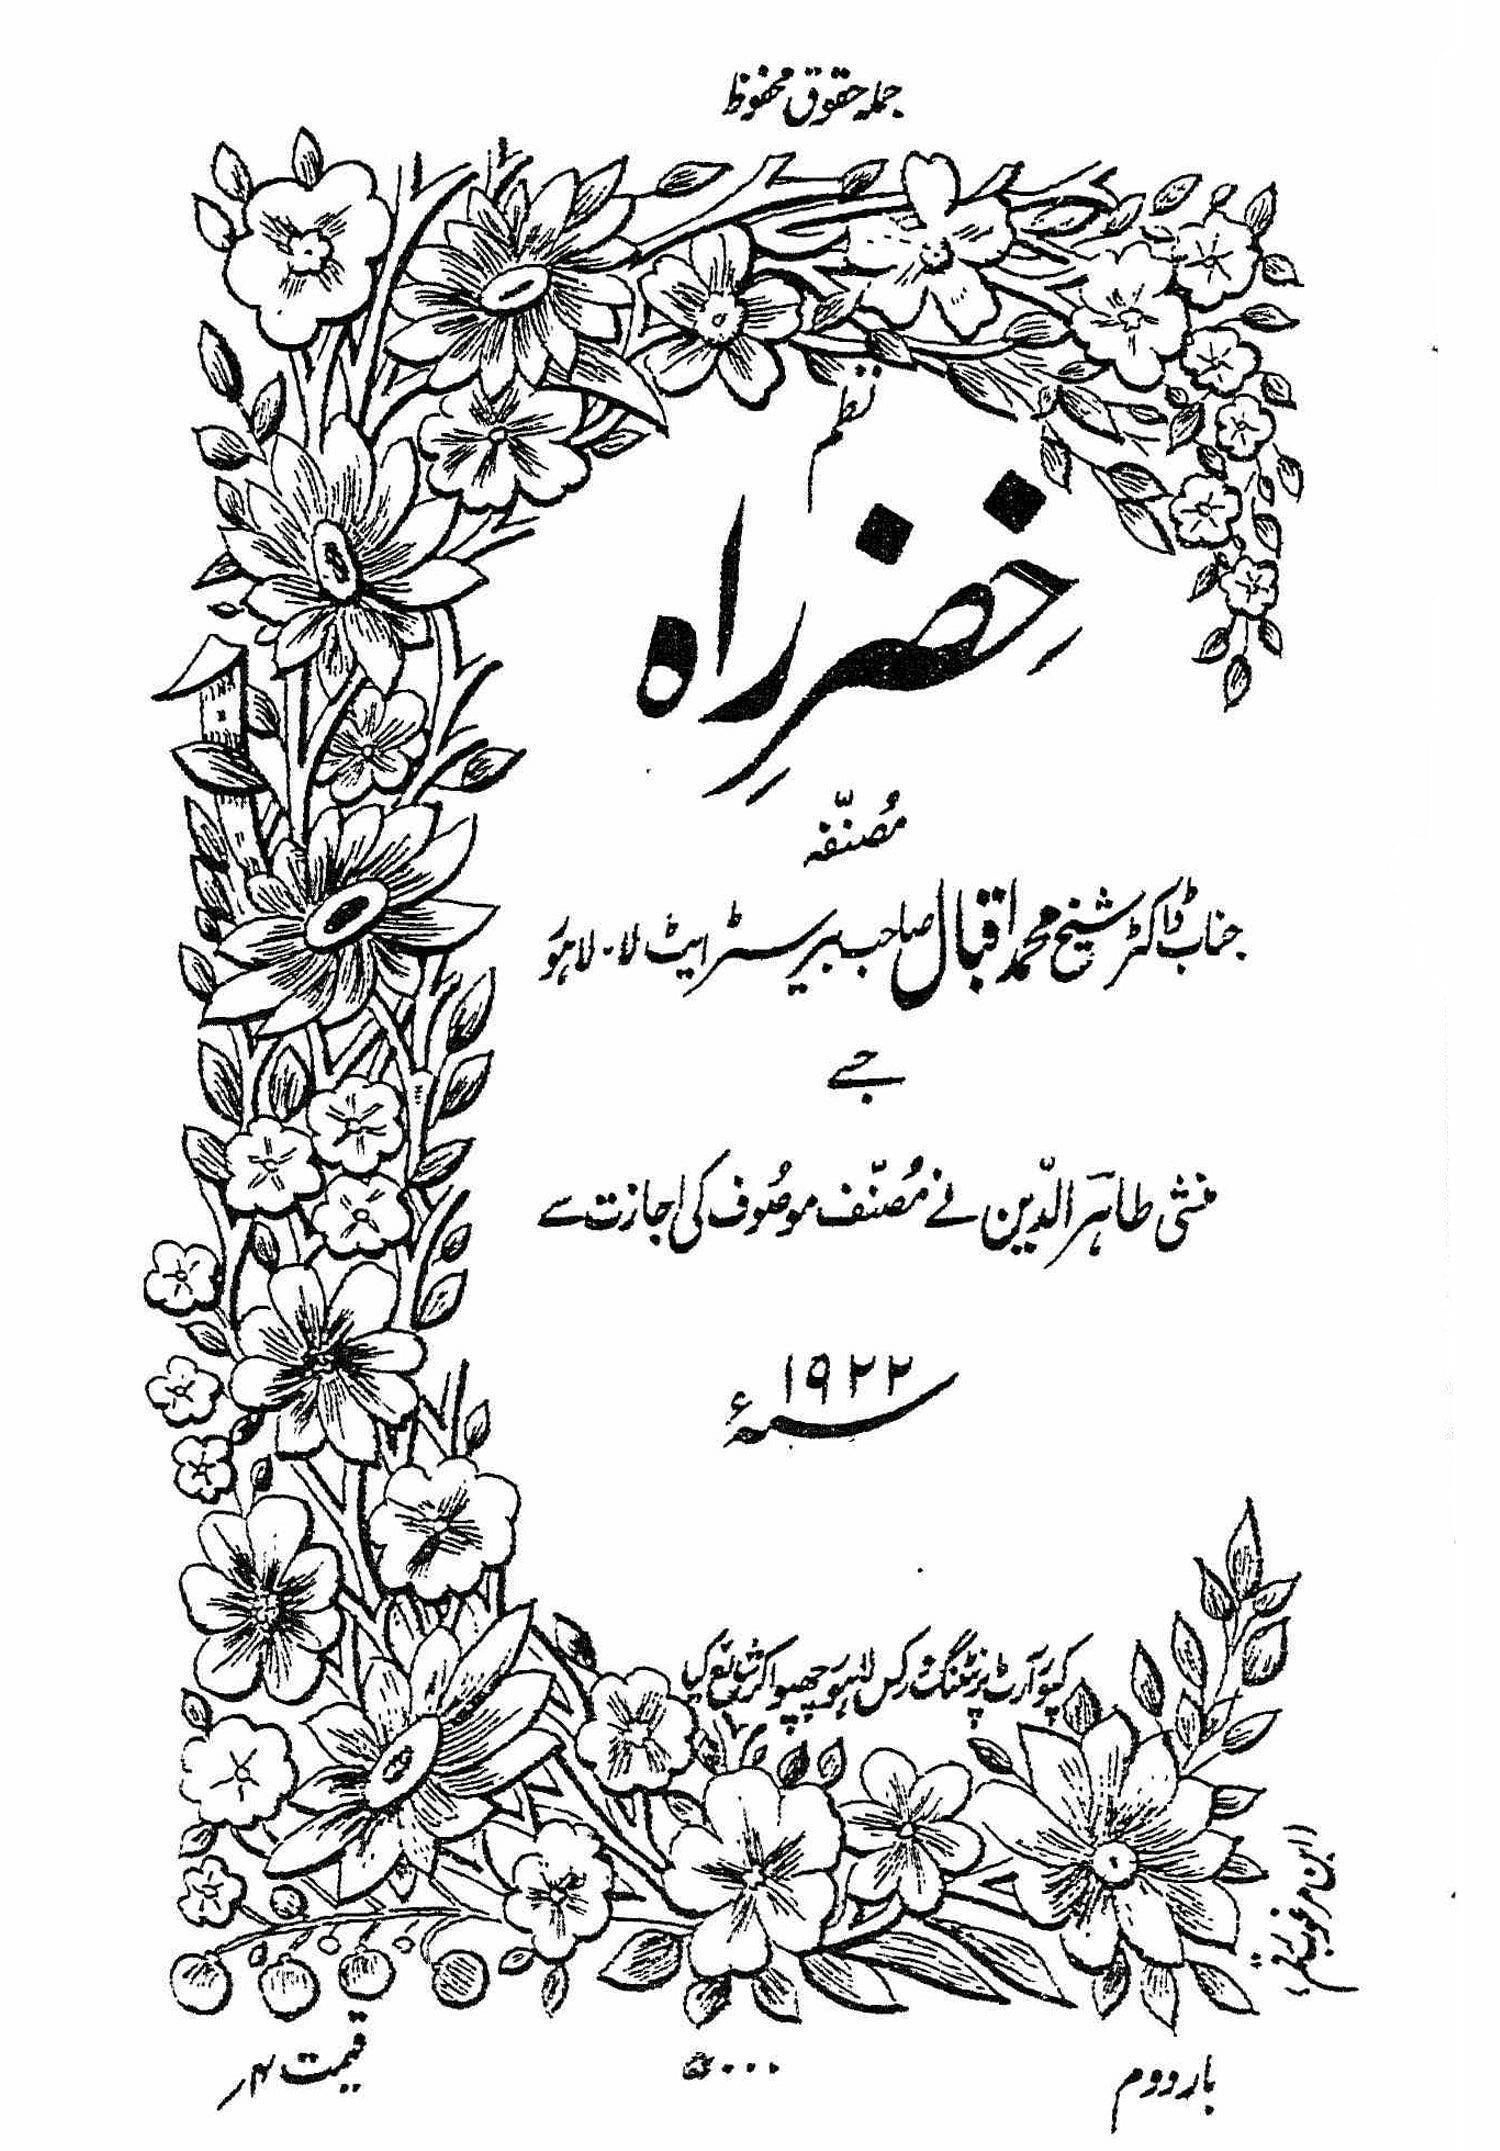 جملہ حقوق محفوظ
نظم
خضرِ راہ
مُصنّفہ
جناب ڈاکٹر شیخ محمد اقبال صاحب بیرسٹر ایٹ لا۔ لاہور
جسے
منشی طاہر الدّین نے مُصنّف موصُوف کی اجازت سے
سنہ ۱۹۲۲ء
کپور آرٹ پرنٹنگ ورکس لاہور چھپوا کر شائع کی
بار دوم
۵۰۰۰
قیمت ۴ر